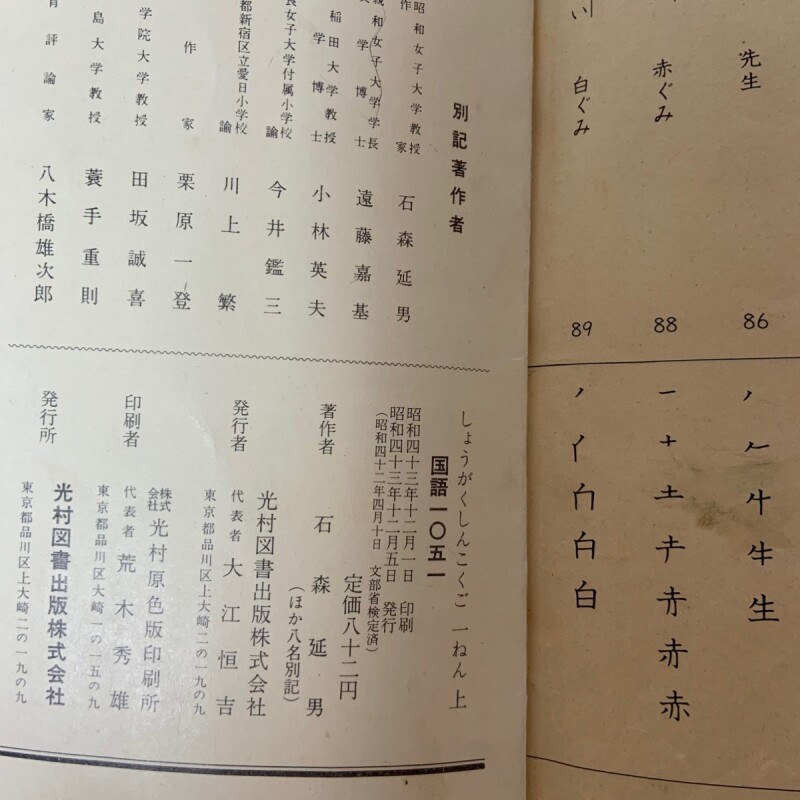 先生
86
ノ 𠂉 牛 牛 生
赤ぐみ
88
一 十 土 キ 赤 赤 赤
川
白ぐみ
89
ノ 亻 白 白 白
別記著作者
昭和女子大学教授
作家
石森延男
親和女子大学学長
文学博士
遠藤嘉基
稲田大学教授
学博士
小林英夫
良女子大学付属小学校
諭
今井鑑三
都新宿区立愛日小学校
諭
川上繁
作家
栗原一登
学院大学教授
田坂誠喜
島大学教授
蓑手重則
育評論家
八木橋雄次郎
しょうがくしんこくご 一ねん 上
国語一〇五一
昭和四十三年十二月一日 印刷
昭和四十三年十二月五日 発行
(昭和四十二年四月十日 文部省検定済)
定価八十二円
著作者 石森延男
(ほか八名別記)
発行者 光村図書出版株式会社
代表者 大江恒吉
東京都品川区上大崎二の一九の九
印刷者 株式会社 光村原色版印刷所
代表者 荒木秀雄
東京都品川区大崎一の一五の九
発行所 光村図書出版株式会社
東京都品川区上大崎二の一九の九